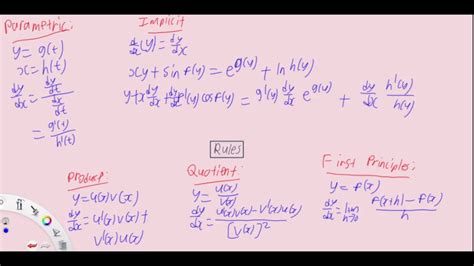 Parametric:
y = g(t)
x = h(t)
dy/dx = (dy/dt)/(dx/dt)
= g'(t)/h'(t)
Implicit
d/dx(y) = dy/dx
xy + sin f(y) = e^g(y) + ln h(y)
y + x dy/dx + dy/dx f'(y) cos f(y) = g'(y) dy/dx e^g(y) + dy/dx h'(y)/h(y)
Rules
Product:
y = u(x) v(x)
dy/dx = u'(x) v(x) +
v'(x) u(x)
Quotient:
y = u(x)/v(x)
dy/dx = (u'(x) v(x) - v'(x) u(x))/[v(x)]^2
First Principles:
y = f(x)
dy/dx = lim h→0 (f(x+h) - f(x))/h